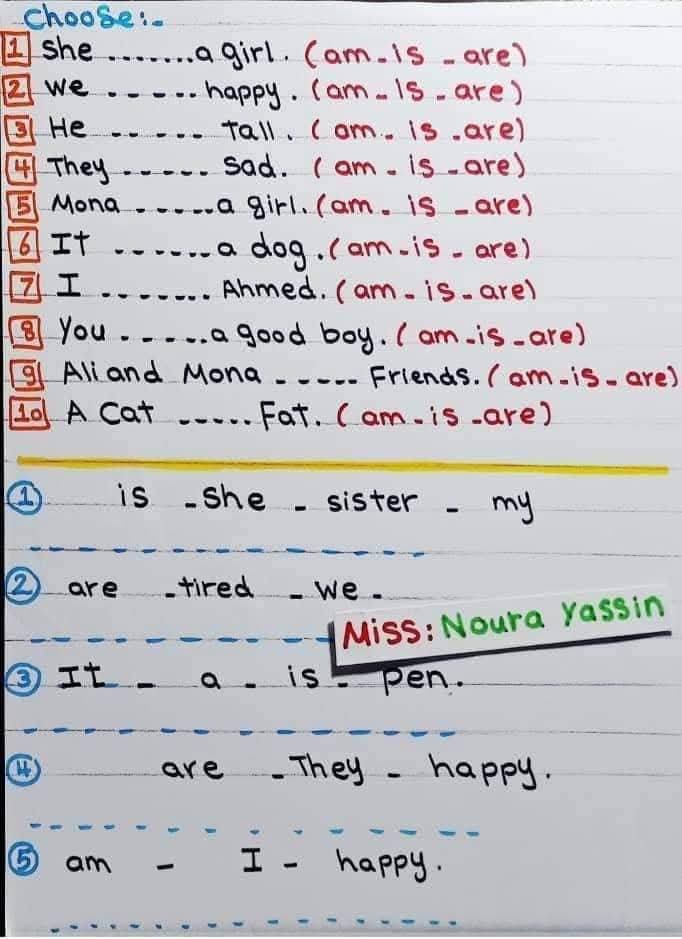 Choose:-
1 She ........a girl. (am-is - are)
2 we ------ happy. (am-Is-are)
3 He ------ Tall. (am- is .are)
4 They ------ Sad. (am - is -are)
5 Mona ------a girl. (am- is -are)
6 It -------a dog.(am-is - are)
7 I ....... Ahmed. (am-is-are)
8 You ------a good boy. (am-is-are)
9 Ali and Mona ----- Friends. (am-is-are)
10 A Cat ----- Fat. (am-is -are)
1 is - she - sister - my
2 are - tired - we -
Miss: Noura Yassin
3 It - a - is - pen.
4 are - They - happy.
5 am - I - happy.